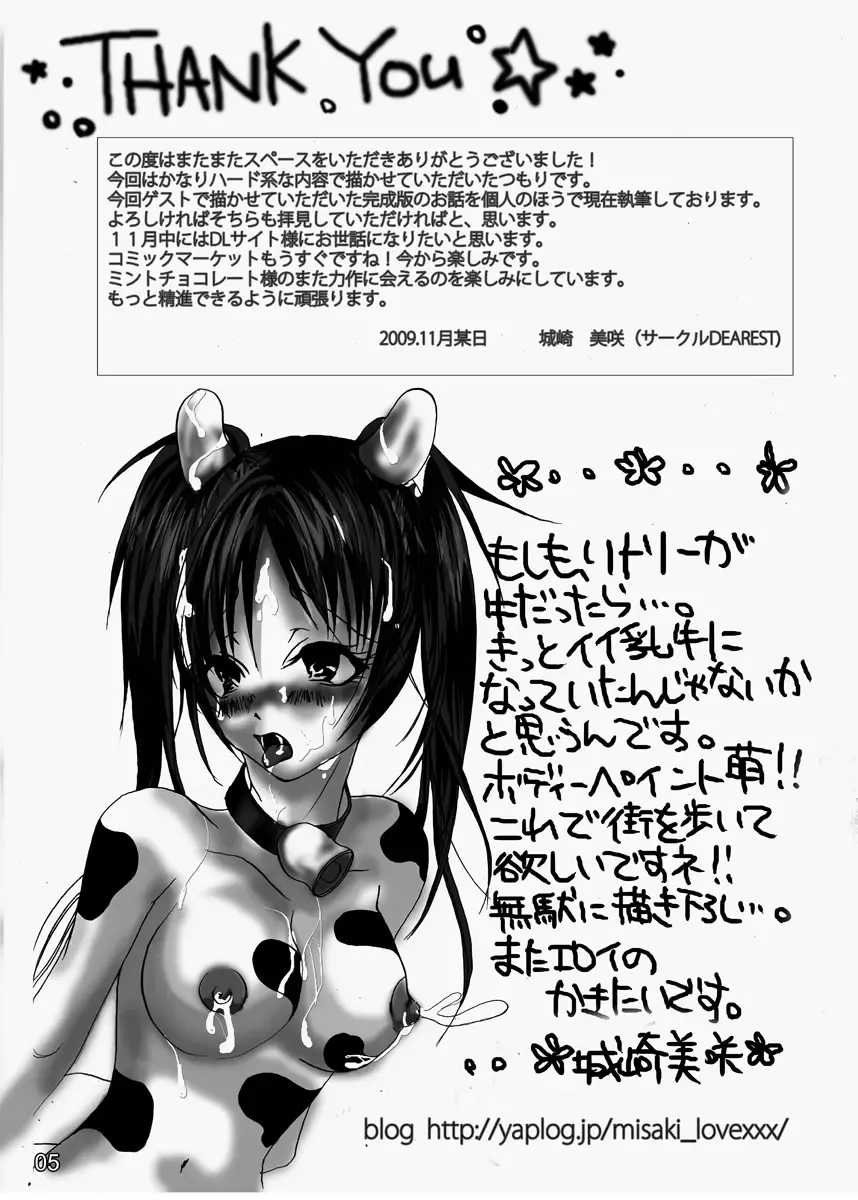 THANK YOU
この度はまたまたスペースをいただきありがとうございました！
今回はかなりハード系な内容で描かせていただいたつもりです。
今回ゲストで描かせていただいた完成版のお話を個人のほうで現在執筆しております。
よろしければそちらも拝見していただければと、思います。
１１月中にはDLサイト様にお世話になりたいと思います。
コミックマーケットもうすぐですね！今から楽しみです。
ミントチョコレート様のまた力作に会えるのを楽しみにしています。
もっと精進できるように頑張ります。
2009.11月某日 城崎 美咲（サークルDEAREST)
もしも、リトリーが
牛だったら…。
きっとイイ乳牛に
なっていたんじゃないか
と思うんです。
ボディーペイント萌!!
これで街を歩いて
欲しいですネ!!
無駄に描き下ろし…。
またエロイの
かきたいです。
城崎美咲
blog http://yaplog.jp/misaki_lovexxx/
05